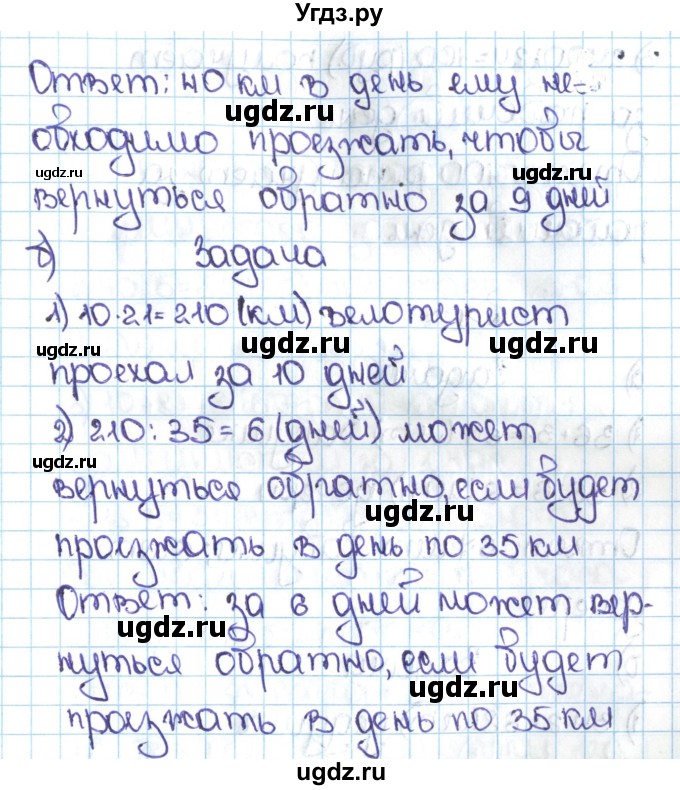 Угдз.ру
Ответ: 40 км в день ему не-
ugdz.ru
обходимо проезжать, чтобы
ugdz.ru ugdz.ru
вернуться обратно за 9 дней
б) Задача
ugdz.ru
1) 10·21=210 (км) велотурист
ugdz.ru ugdz.ru
проехал за 10 дней
2) 210:35=6 (дней) может
ugdz.ru
вернуться обратно, если будет
ugdz.ru
проезжать в день по 35 км
Ответ: за 6 дней может вер-
ugdz.ru
нуться обратно, если будет
ugdz.ru
проезжать в день по 35 км
ugdz.ru